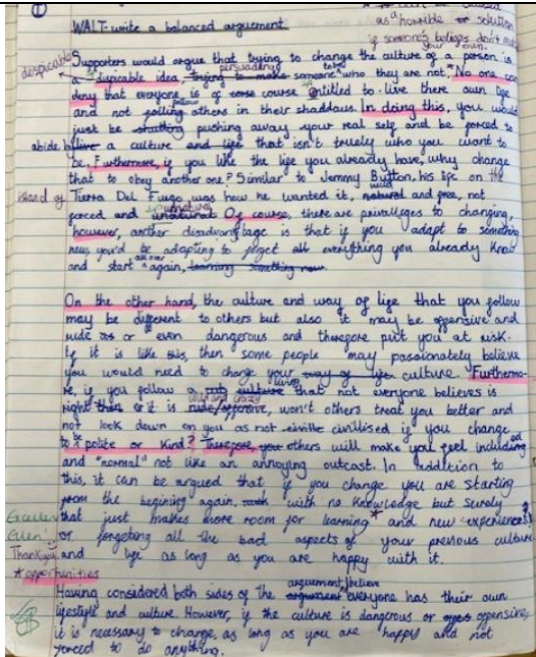 ①
WALT: write a balanced arguement
as a horrible solution
if someone's beliefs don't match
your own.
despicable Supporters would argue that trying to change the culture of a person is
a dispicable idea, trying to make persuading someone to be who they are not. No one can
deny that everyone is of course entitled to live there own life
and not follow others in their shaddous. In doing this, you would
just be shutting pushing away your real self and be forced to
abide by live a culture and life that isn't truely who you want to
be. Furthermore, if you like the life you already have, why change
that to obey another one? Similar to Jemmy Button, his life on the
island of Tierra Del Fuego was how he wanted it, natural wild and free, not
forced and unatural. Of course, there are privallages to changing,
however, another disadvantage is that if you adapt to something
new, you'd be adapting to forget all everything you already know
and start all over again, learning something new.
On the other hand, the culture and way of life that you follow
may be different to others but also it may be offensive and
rude as or even dangerous and therefore put you at risk.
If it is like this, then some people may passionately believe
you would need to change your way of life culture. Furthermo-
re, if you follow a culture living that not everyone believes is
right than or it is rude/offensive, wild and crazy won't others treat you better and
not look down on you as not civillised if you change
to a polite or kind? Therefore, you others will make you feel included
and "normal" not like an annoying outcast. In addition to
this, it can be argued that if you change you are starting
from the begining again, with no knowledge but surely
Excellent that just makes more room for learning* and new experiences
Ellen! or forgeting all the bad aspects of your previous culture
Thankyou! and life as long as you are happy with it.
*opportunities
Having considered both sides of the arguement arguement, I believe everyone has their own
lifestyle and culture. However, if the culture is dangerous or offensive,
it is necessary to change, as long as you are happy and not
forced to do anything.